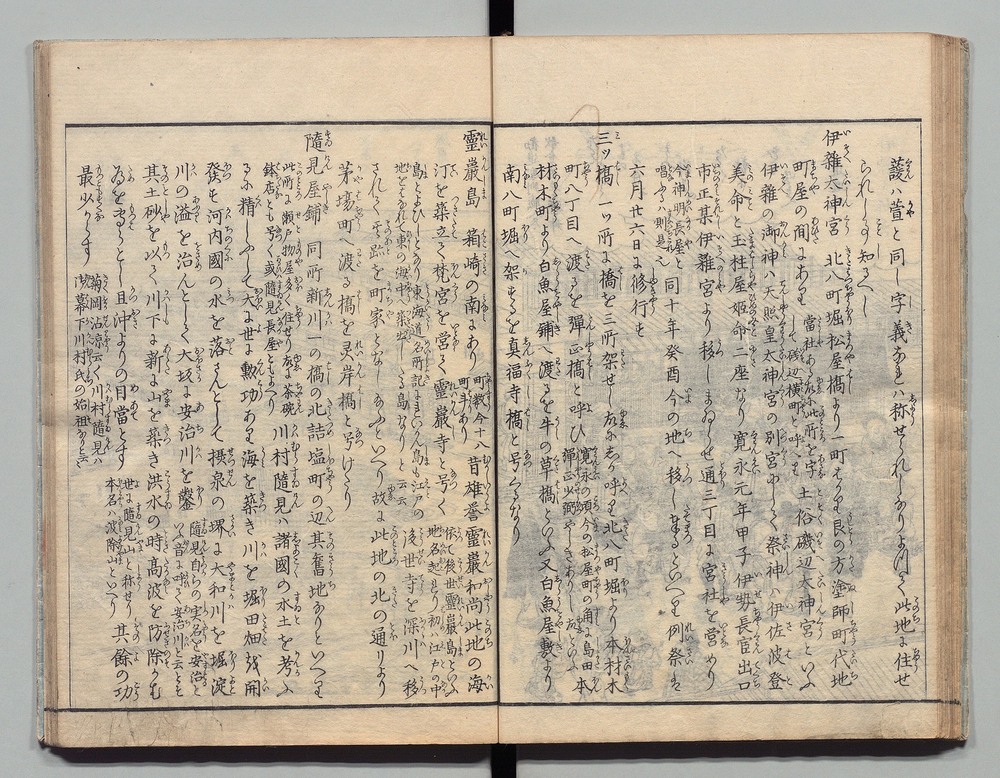 護ハ萱と同し字義なれハ称せられしなりよりて此地に住せ
られしを知るへし
伊雜太神宮 北八町堀松屋橋より一町はかり艮の方塗師町代地
町屋の間にあり 當社ある故に此所を字して磯辺横町と呼へり 土俗磯辺太神宮といふ
伊雜の御神ハ天照皇太神宮の別宮にして祭神ハ伊佐波登
美命と玉柱屋姫命二座なり寛永元年甲子伊勢長官出口
市正某伊雜宮より移しまゐらせ通三丁目に宮社を営めり
今神明長屋と唱ふるハ則是也 同十年癸酉今の地へ移し奉るといへり例祭は
六月廿六日に修行す
三ッ橋 一ッ所に橋を三所架せし故に号とす北八町堀より本材木
町八丁目へ渡るを彈正橋と呼ひ 寛永の頃今の松屋町の角に島田彈正少弼やしきありし故といふ 本
材木町より白魚屋鋪へ渡るを牛の草橋といふ又白魚屋敷より
南八町堀へ架するを真福寺橋と号くるなり
靈巖島 箱崎の南にあり 町数今十八町斗あり 昔雄誉靈巖和尚此地の海
汀を築立て梵宮を営て靈巖寺と号く 依て後世靈巖島といふ地名起れり初ハ江戸の中
島とよひしとなり東海道名所記にれいがん島も江戸の
地をはなれて東の海中へ築出したる島なりと云云 後世寺を深川へ移
されしより其跡を町家となし給ふといへり故に此地の北の通りより
茅場町へ渡る橋を灵岸橋と号けたり
隨見屋鋪 同所新川一の橋の北詰塩町の辺其舊地なりといへり
此所に瀬戸物屋多く住せり故に茶碗鉢店とも号く或隨見長屋ともいへり 川村隨見ハ諸國の水土を考ふ
るに精しふして大に世に勲功あり海を築き川を堀田畑を開
發す河内國の水を落さんとして摂泉の堺に大和川を堀淀
川の溢を治んとして大坂に安治川を鑿り 隨見自らの実名を安治といふ音に呼て安治川と云とも
其土砂を以て川下に新に山を築き洪水の時髙波を防除かむ
為を専らとし且沖よりの目當とす 世に隨見山と称せり本名ハ波除山といへり 其餘の功
最少からす 菊岡沾凉云く川村隨見ハ幕下川村氏の始祖なりと云云